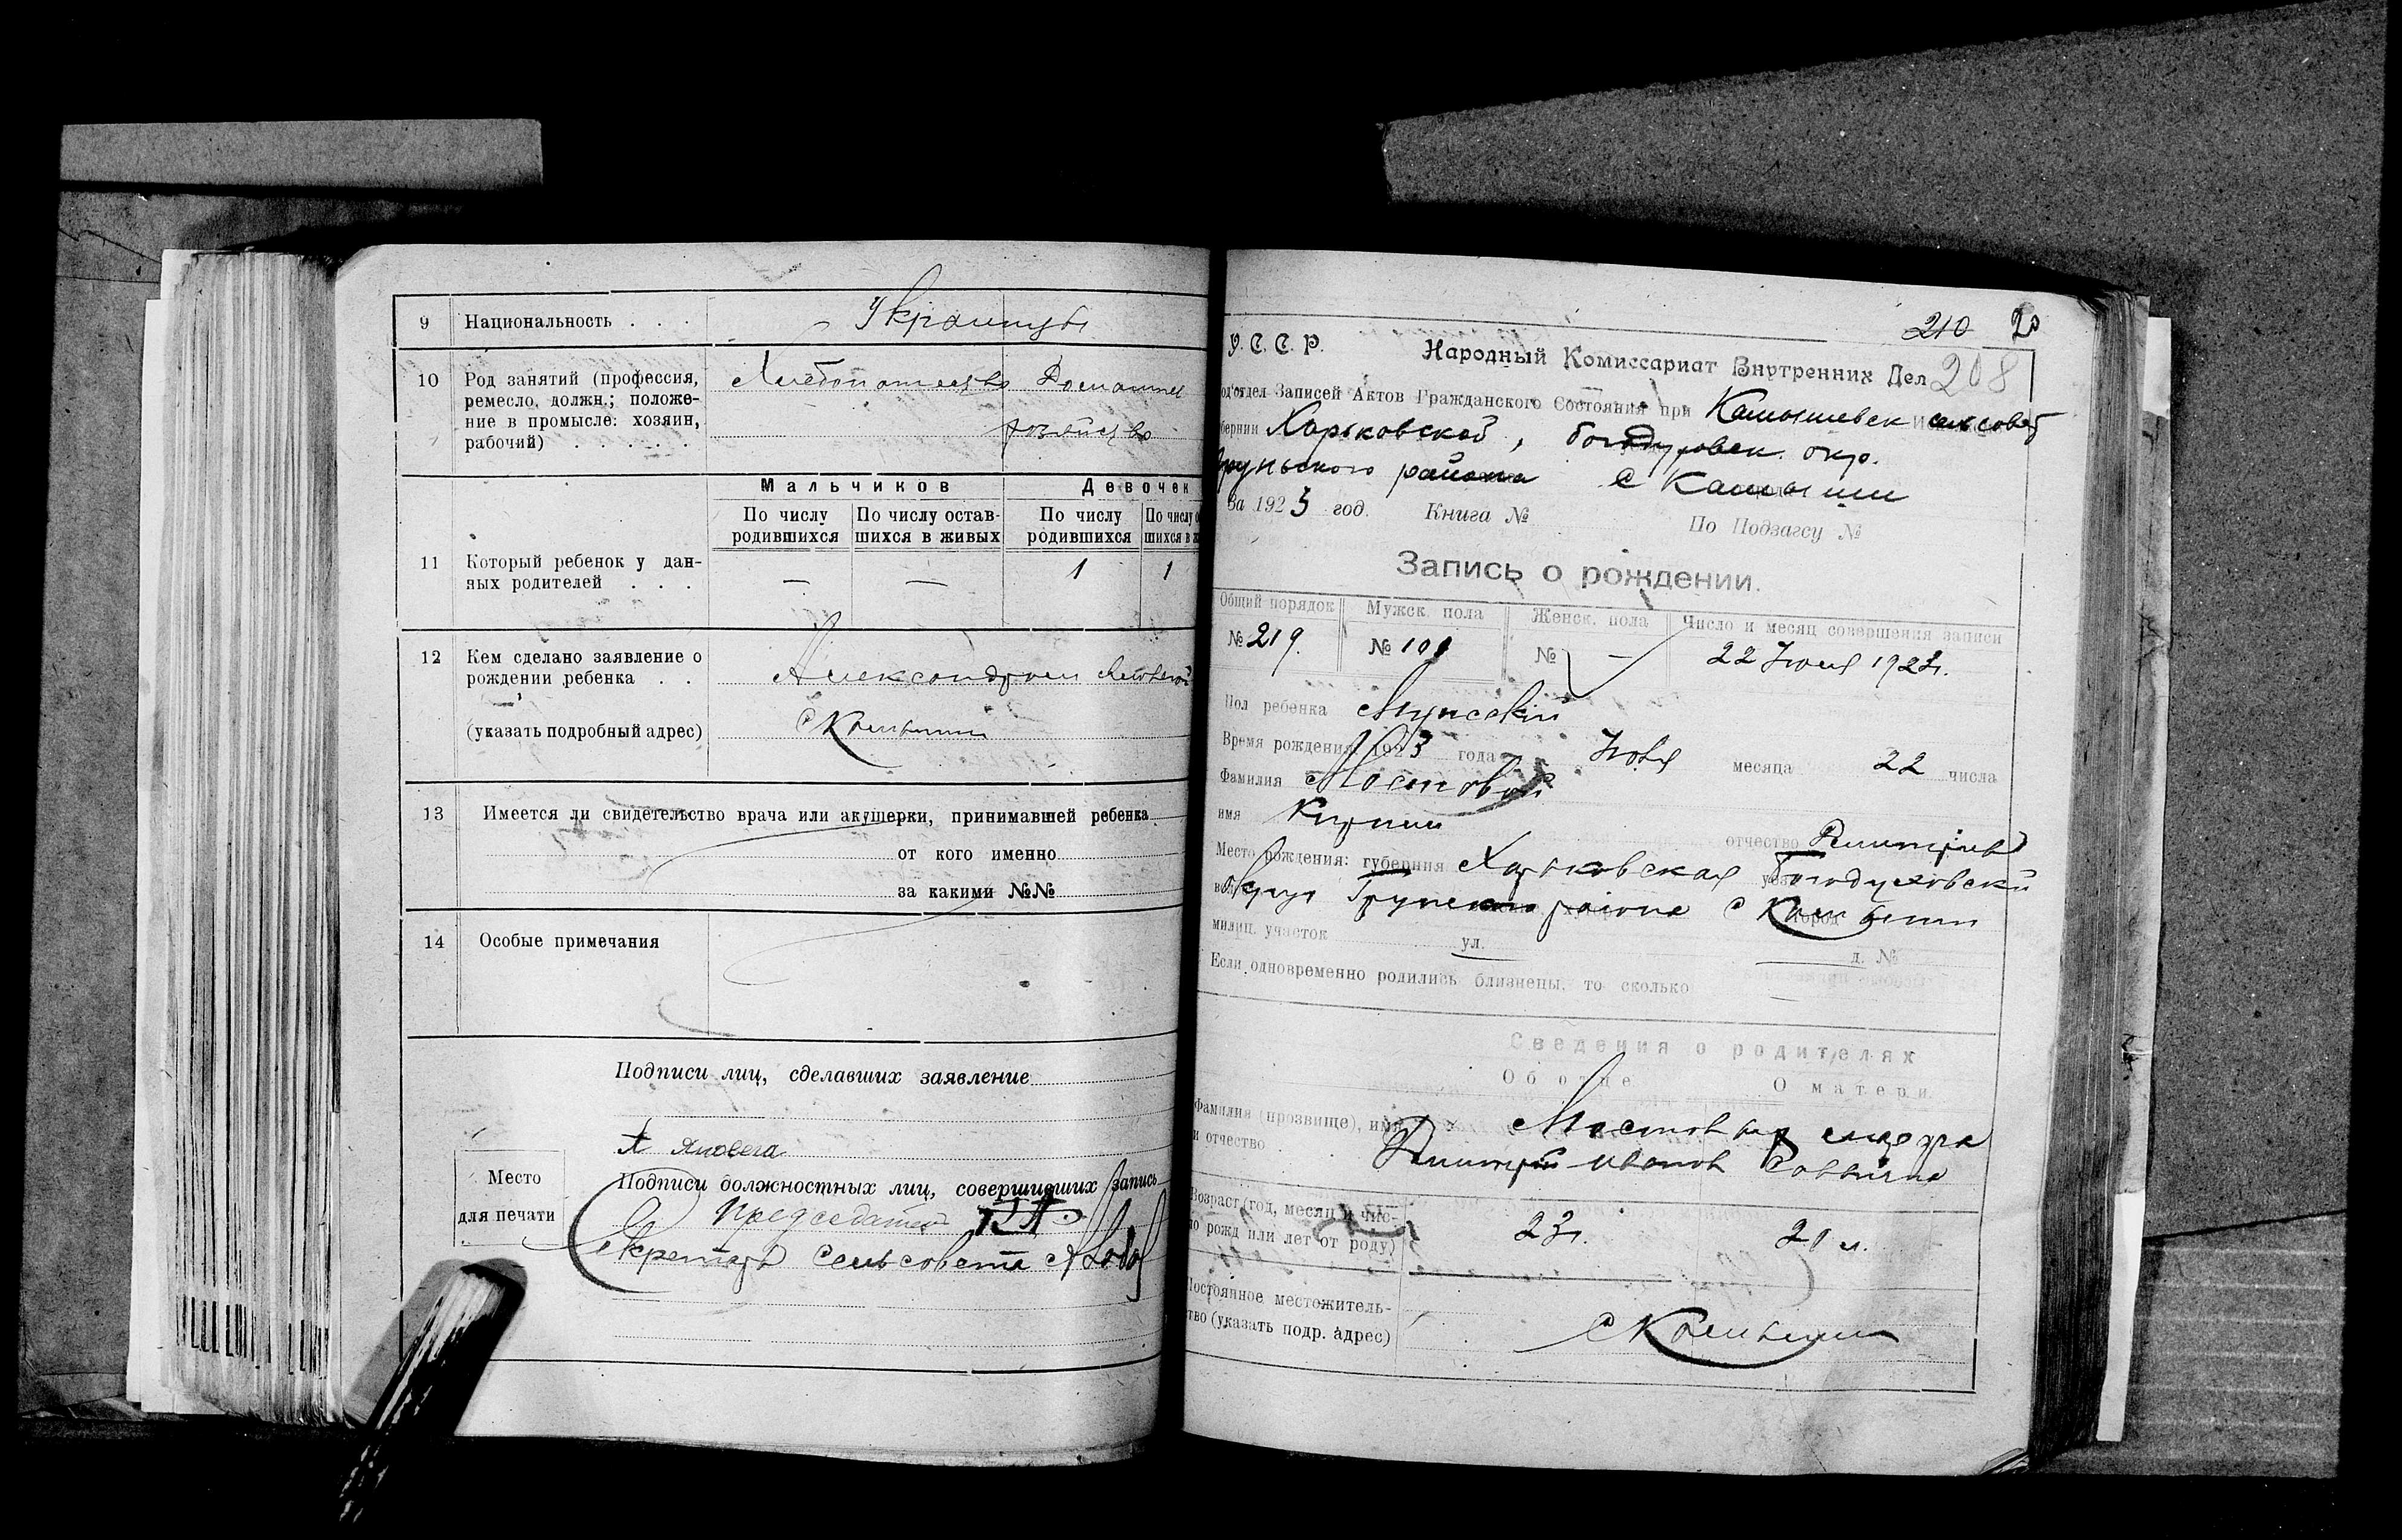 9 Национальность . . .
Украинцы
10 Род занятий (профессия,
ремесло, должн.; положе-
ние в промысле: хозяин,
рабочий) . . . . . .
Хлебопашество Домашнее
хозяйство
Мальчиков Девочек
По числу родившихся
По числу остав-
шихся в живых
По числу родившихся
11 Который ребенок у дан-
ных родителей . . .
— — 1 1
12 Кем сделано заявление о
рождении ребенка . .
Александром
(указать подробный адрес)
с Камыши
13 Имеется ли свидетельство врача или акушерки, принимавшей ребенка
от кого именно
за какими №№
14 Особые примечания
Подписи лиц, сделавших заявление
Место
для печати
Подписи должностных лиц, совершивших запись
Председатель
Секретарь сельсовета
210
208
У. С. С. Р. Народный Комиссариат Внутренних Дел
отдел Записей Актов Гражданского Состояния при Камышевск сельсовет
Харьковской, Богодуховск. окр.
района с Камыши
За 1923 год. Книга № По Подзагсу №
Запись о рождении.
Общий порядок Мужск. пола Женск. пола Число и месяц совершения записи
№ 219. № 101 № — 22 1923г.
Пол ребенка Мужской
Время рождения 1923 года месяца 22 числа
Фамилия Мостовой
имя Кирилл отчество Дмитриев
Место рождения: губерния Харьковская Богодуховский
округ района с Камыши
милиц. участок ул. д. №
Если одновременно родились близнецы, то сколько —
Сведения о родителях
Об отце О матери.
Фамилия (прозвище), имя
и отчество
Мостовые
Дмитрий Иванов Саввична
Возраст (год, месяц и чис-
ло рожд или лет от роду)
23г. 21 л.
Постоянное местожитель-
ство (указать подр. адрес)
с Камыши